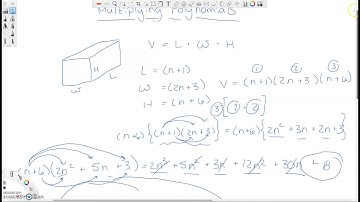 Multiplying Polynomials
V = L · W · H
H
L
W
L = (n+1)
W = (2n+3)
H = (n+6)
① ② ③
V = (n+1)(2n+3)(n+6)
③[①·②]
(n+6){(n+1)(2n+3)} = (n+6){2n² + 3n + 2n+3}
(n+6)(2n² + 5n + 3) = 2n³ + 5n² + 3n + 12n² + 30n + 18